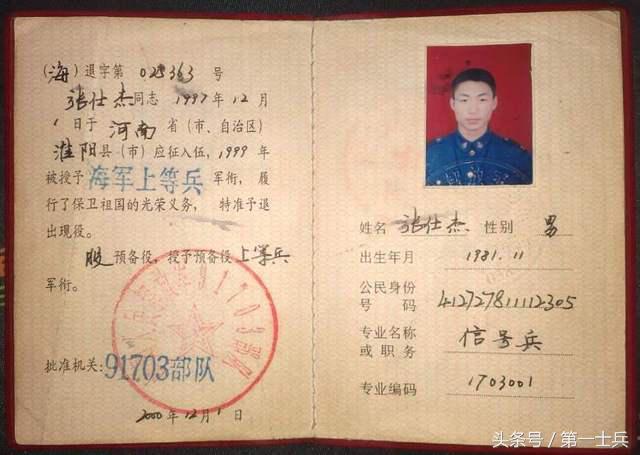 (海)退字第 025363 号
张仕杰同志1997年12月
1日于 河南 省(市、自治区)
淮阳县(市)应征入伍, 1999年
被授予 海军上等兵 军衔, 履
行了保卫祖国的光荣义务, 特准予退
出现役。
服预备役, 授予预备役上等兵
军衔。
91703部队
批准机关: 91703部队
2000年12月1日
姓名 张仕杰 性别 男
出生年月 1981.11
公民身份
号码 412727811112305
专业名称 信号兵
或职务
专业编码 1703001
头条号 / 第一士兵